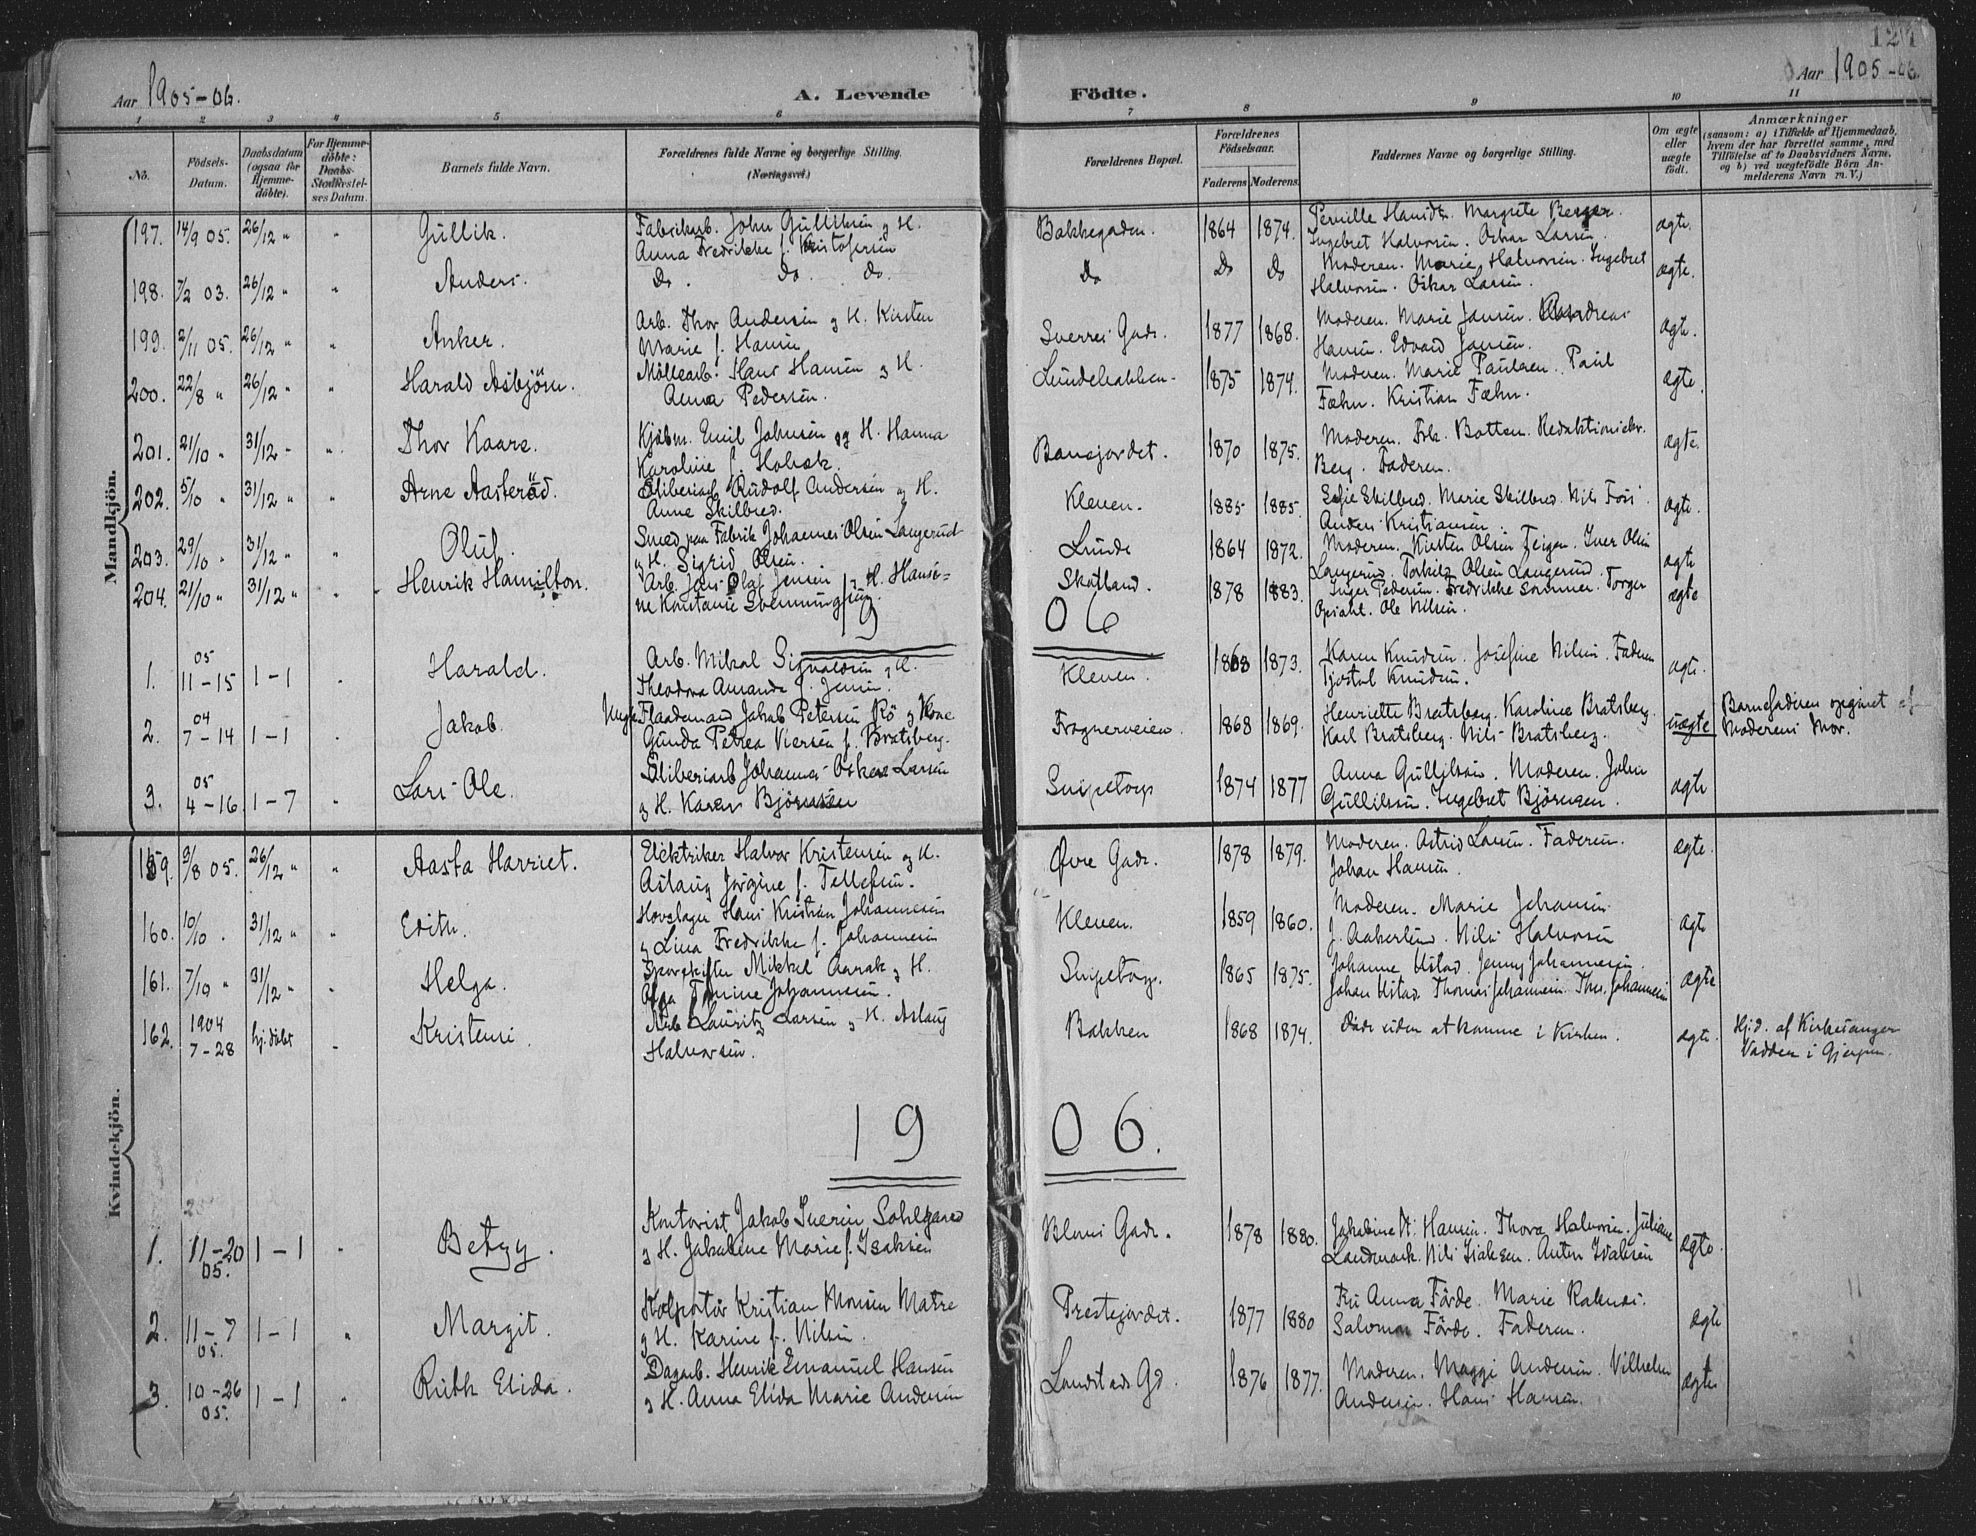 Aar 1905-06.
A. Levende
1 2 3 4 5 6
No.
Födsels-Datum.
Daabsdatum (ogsaa for Hjemme-döbte).
For Hjemme-döbte: Daabs-Stadfæstel-ses Datum.
Barnets fulde Navn.
Forældrenes fulde Navne og borgerlige Stilling.
(Næringsvei.)
Mandkjön.
197. 14/9 05. 26/12 " " Gullik. Fabrikarb. John Gulliksen og H.
Anna Fredrikke f. Kristofersen
198. 7/2 03. 26/12 " " Anders. Do. Do. Do.
199. 2/11 05. 26/12 " " Anker. Arb. Thor Andersen og H. Kirsten
Marie f. Hansen
200. 22/8 " 26/12 " " Harald Asbjörn. Möllearb. Hans Hansen og H.
Anna Pedersen.
201. 21/10 " 31/12 " " Thor Kaare. Kjöbm. Emil Johnsen og H. Hanna
Karoline f. Holxck.
202. 5/10 " 31/12 " " Arne Aasterud. Sliberiarb Rudolf Andersen og H.
Anne Skilbred.
203. 29/10 " 31/12 " " Oluf. Smed paa Fabrik Johannes Olsen Langerud
og H. Sigrid Olsen.
204. 21/10 " 31/12 " " Henrik Hamilton. Arb. Jens Olaf Jensen og H. Hansi=
ne Konstanse Svenningsen.
19
1. 05 11-15 1-1 " Harald. Arb. Mikal Sigvaldsen og H.
Theodora Amanda f. Jensen.
2. 04 7-14 1-1 " Jakob. Ungk. Flaademand Jakob Petersen Rö og Kone
Gunda Petrea Viersen f. Bratsberg.
3. 05 4-16 1-7 " Lars Ole. Sliberiarb Johannes Oskar Larsen
og H. Karen Björnsen
Kvindekjön.
159. 3/8 05. 26/12 " " Aasta Harriet. Elektriker Halvor Kristensen og H.
Aslaug Jörgine f. Tellefsen.
160. 10/10 " 31/12 " " Edith. Hovslager Hans Kristian Johannesen
og Lina Fredrikke f. Johannesen
161. 7/10 " 31/12 " " Helga. Sporskifter Mikkel Aarak og H.
Olga Tomine Johannesen.
162. 1904 7-28 hj. döbt " Kristense. Arb Lauritz Larsen og H. Aslaug
Halvorsen.
19
1. 11-20 05. 1-1 " Betzy. Kontorist Jakob Iversen Sohlgaard
og H. Jakobine Marie f. Isaksen
2. 11-7 05. 1-1 " Margit. Kolportör Kristian Monsen Matre
og H. Karine f. Nilsen.
3. 10-26 05. 1-1 " Ruth Elida. Dagarb. Henrik Emanuel Hansen
og H. Anna Elida Marie Andersen
121
Födte.
Aar 1905-06.
7 8 9 10 11
Forældrenes Bopæl.
Forældrenes Födselsaar.
Faderens. Moderens.
Faddernes Navne og borgerlige Stilling.
Om ægte eller uægte födt.
Anmærkninger
(saasom: a) i Tilfælde af Hjemmedaab,
hvem der har forrettet samme, med
Tilföielse af to Daabsvidners Navne,
og b) ved uægtefödte Börn An-
melderens Navn m. V.)
Bakkegaden. 1864 1874. Pernille Hamidt. Margrete Berger.
Ingebret Halvorsen. Oskar Larsen. ægte.
Do Do Do Moderen. Marie Halvorsen. Ingebret
Halvorsen. Oskar Larsen. ægte.
Sverres Gade. 1877 1868. Moderen. Marie Jansen. Andreas
Hansen. Edvard Jansen. ægte.
Lundebakken. 1875 1874. Moderen. Marie Paulsen. Paul
Fæhn. Kristian Fæhn. ægte.
Banejordet. 1870 1875. Moderen. Frk. Botten. Redaktionssekr.
Berg. Faderen. ægte.
Kleven. 1885 1885. Sofie Skilbred. Marie Skilbred. Nils Foss.
Anders Kristiansen. ægte.
Lunde 1864 1872. Moderen. Kirsten Olsen Teigen. Iver Olsen
Langerud. Torkild Olsen Langerud. ægte
Skotland. 1878 1883. Inger Pedersen. Fredrikke Sommer. Torger
Opsahl. Ole Nilsen. ægte
06
Kleven. 1868 1873. Karen Knudsen. Josefine Nilsen. Faderen
Tjostol Knudsen. ægte.
Frognerveien. 1868 1869. Henriette Bratsberg. Karoline Bratsberg.
Karl Bratsberg. Nils Bratsberg. uægte Barnefaderen opgivet af
Moderens Mor.
Snipetorp 1874 1877 Anna Gullilsen. Moderen. John
Gullilsen. Ingebret Björnsen. ægte
Övre Gade. 1878 1879. Moderen. Astrid Larsen. Faderen.
Johan Hansen. ægte.
Kleven. 1859 1860. Moderen. Marie Johansen
J. Aakerlund. Nils Halvorsen ægte
Snipetorp. 1865 1875. Johanne Ustad. Jenny Johannesen.
Johan Ustad. Thomas Johannesen. Ths. Johannesen ægte
Bakken 1868 1874. Döde uden at komme i Kirken. ægte. Hj.d. af Kirkesanger
Vadder i Gjerpen.
06.
Bloms Gade. 1878 1880. Jakobine H. Hansen. Thora Halvorsen. Juliane
Landmark. Nils Isaksen. Anton Isaksen ægte.
Prestejordet. 1877 1880 Fru Anna Förde. Marie Raknes.
Salomon Förde. Faderen. ægte
Lundstads Gd. 1876 1877. Moderen. Maggi Andersen. Vilhelm
Andersen. Hans Hansen. ægte